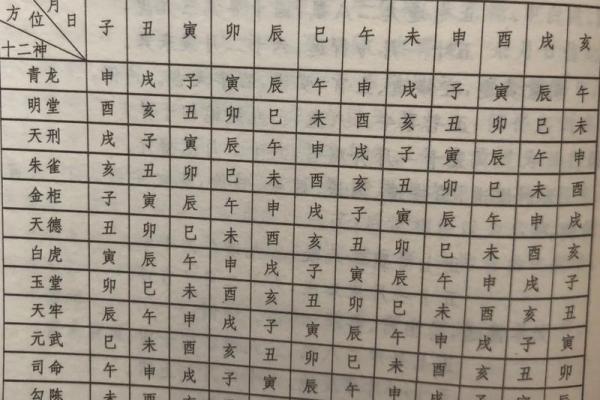 方位 月 日
十二神 子 丑 寅 卯 辰 巳 午 未 申 酉 戌 亥
青龙 申 戌 子 寅 辰 午 申 戌 子 寅 辰 午
明堂 酉 亥 丑 卯 巳 未 酉 亥 丑 卯 巳 未
天刑 戌 子 寅 辰 午 申 戌 子 寅 辰 午 申
朱雀 亥 丑 卯 巳 未 酉 亥 丑 卯 巳 未 酉
金柜 子 寅 辰 午 申 戌 子 寅 辰 午 申 戌
天德 丑 卯 巳 未 酉 亥 丑 卯 巳 未 酉 亥
白虎 寅 辰 午 申 戌 子 寅 辰 午 申 戌 子
玉堂 卯 巳 未 酉 亥 丑 卯 巳 未 酉 亥 丑
天牢 辰 午 申 戌 子 寅 辰 午 申 戌 子 寅
元武 巳 未 酉 亥 丑 卯 巳 未 酉 亥 丑 卯
司命 午 申 戌 子 寅 辰 午 申 戌 子 寅 辰
勾陈 未 酉 亥 丑